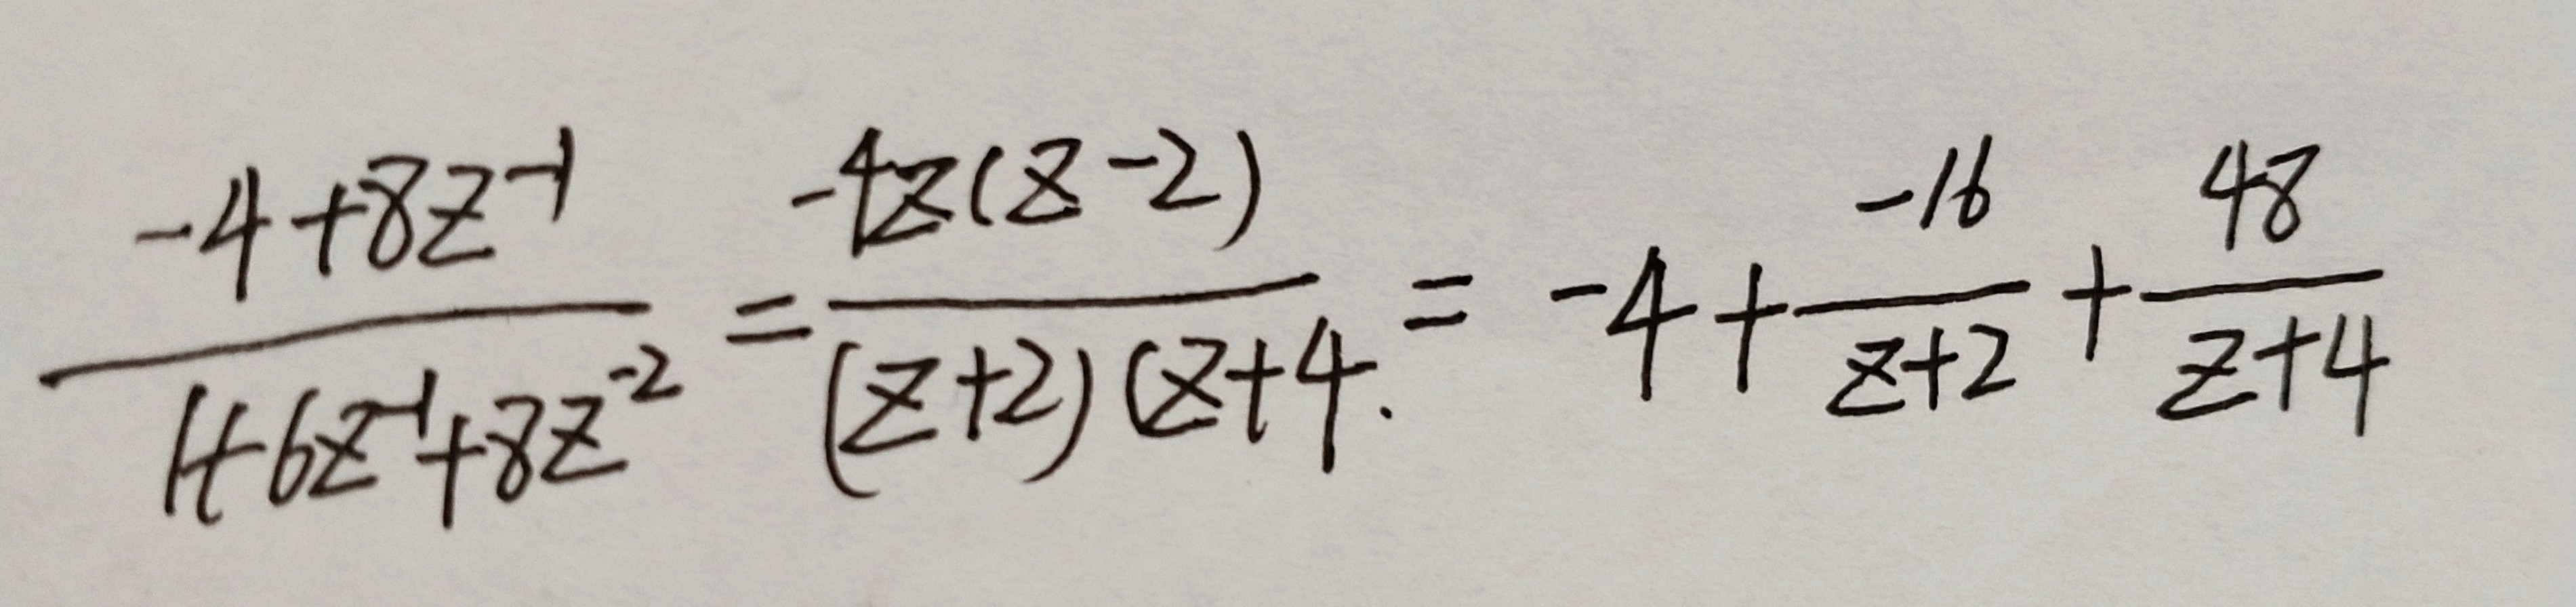 \frac{-4+8z^{-1}}{1+6z^{-1}+8z^{-2}} = \frac{-4z(z-2)}{(z+2)(z+4.} = -4+\frac{-16}{z+2}+\frac{48}{z+4}